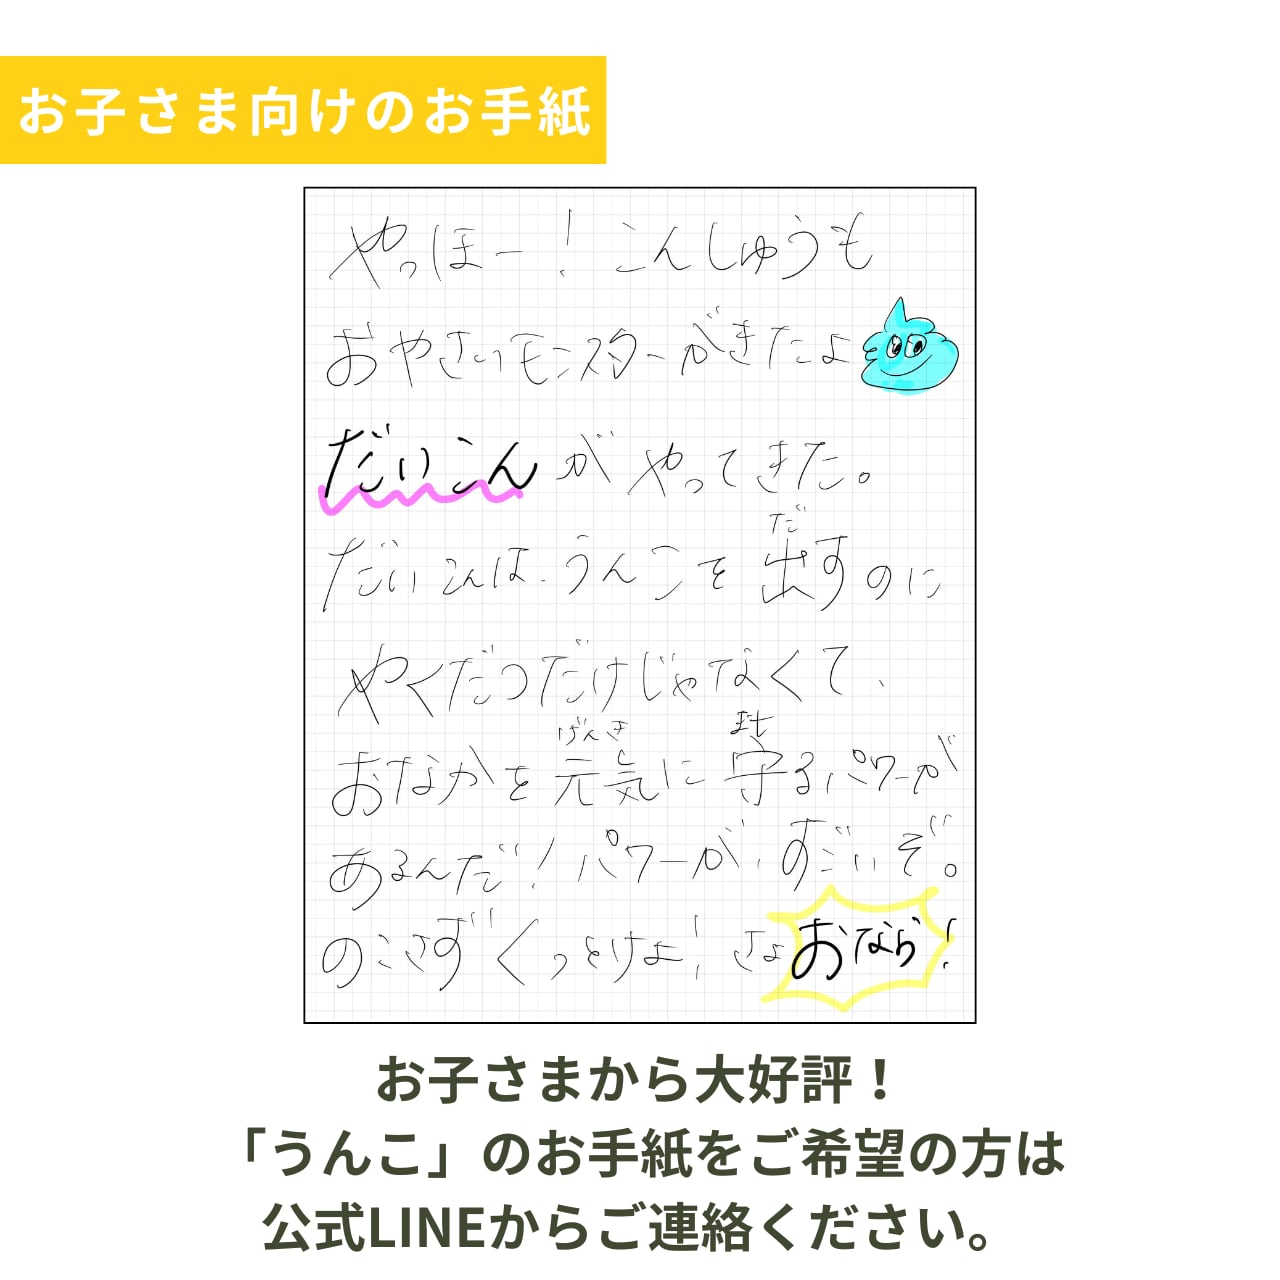 お子さま向けのお手紙
やっほー！こんしゅうも
おやさいモンスターがきたよ
だいこんがやってきた。
だいこんは、うんこを出すのに
だ
やくだつだけじゃなくて、
げんき まも
おなかを元気に守るパワーが
あるんだ！パワーが、すごいぞ。
のこさずくっとけよ！さよおなら！
お子さまから大好評！
「うんこ」のお手紙をご希望の方は
公式LINEからご連絡ください。